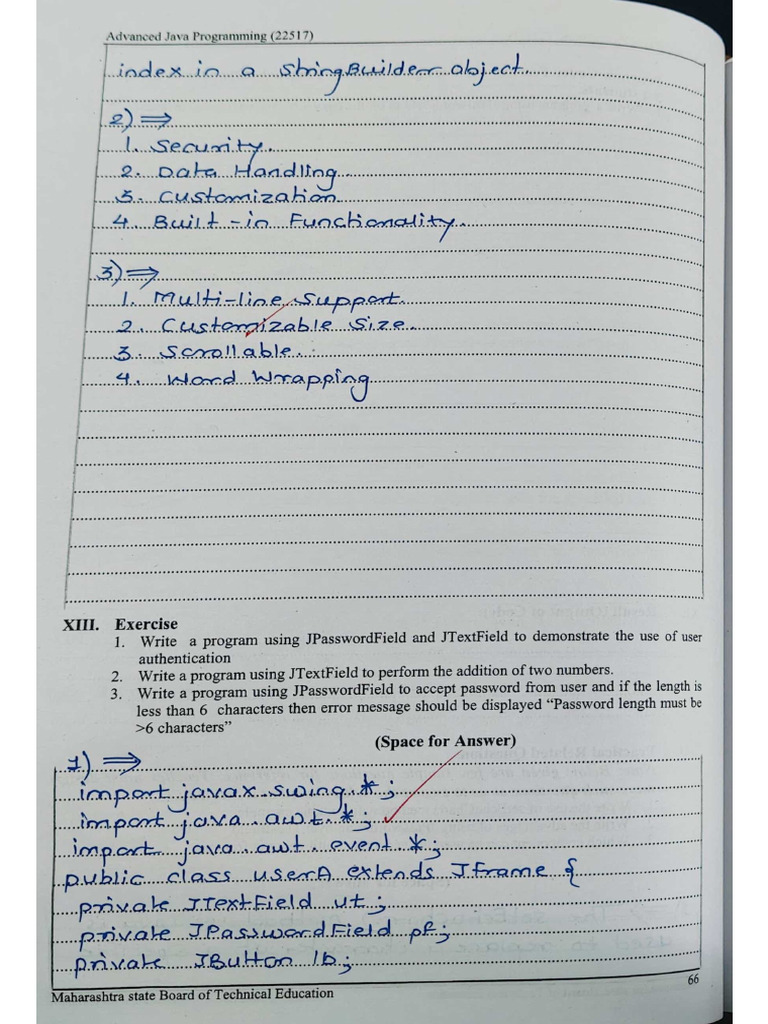 Advanced Java Programming (22517)
index in a StringBuilder object.
2) ⇒
1. Security.
2. Data Handling
3. Customization
4. Built-in Functionality.
3) ⇒
1. Multi-line Support.
2. Customizable Size.
3. Scrollable.
4. Word Wrapping
XIII. Exercise
1. Write a program using JPasswordField and JTextField to demonstrate the use of user
authentication
2. Write a program using JTextField to perform the addition of two numbers.
3. Write a program using JPasswordField to accept password from user and if the length is
less than 6 characters then error message should be displayed “Password length must be
>6 characters”
(Space for Answer)
1) ⇒
import javax.swing.*;
import java.awt.*;
import java.awt.event.*;
public class userA extends Jframe {
private JTextField ut;
private JPasswordField pf;
private JButton lb;
66
Maharashtra state Board of Technical Education